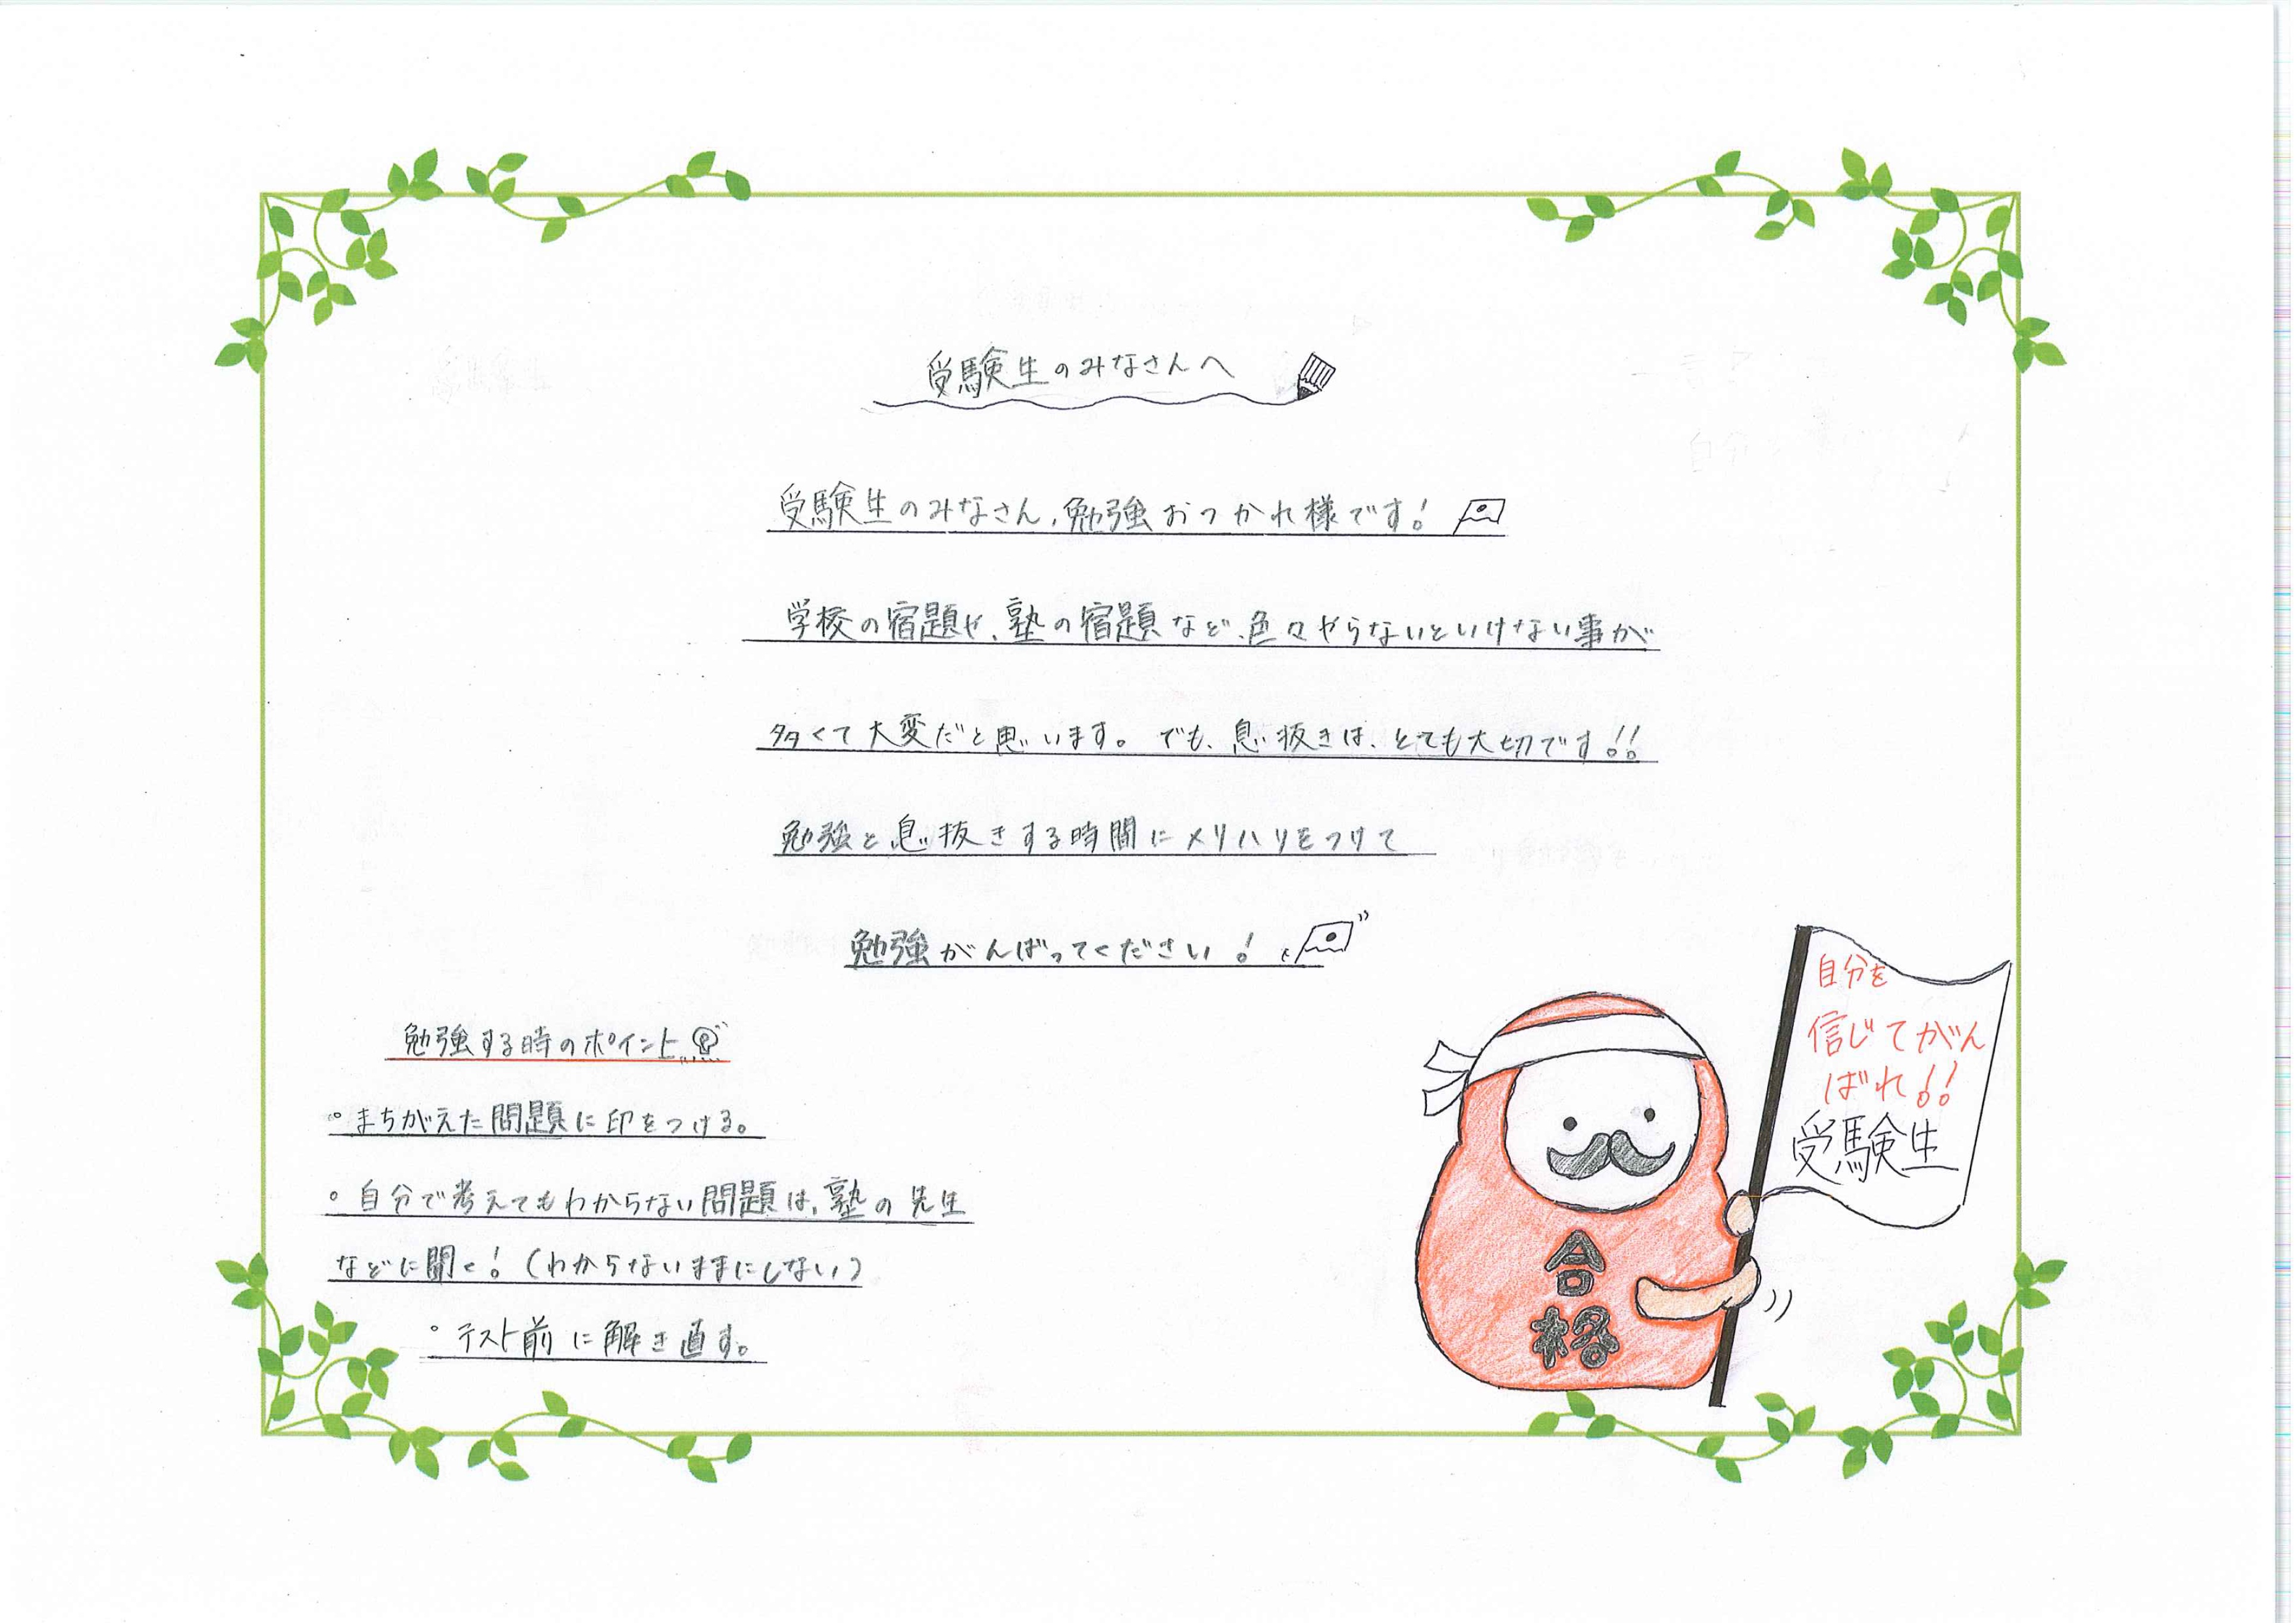 受験生のみなさんへ
受験生のみなさん、勉強おつかれ様です!
学校の宿題や、塾の宿題など、色々やらないといけない事が
多くて大変だと思います。でも、息抜きは、とても大切です!!
勉強と息抜きする時間にメリハリをつけて
勉強がんばってください!
勉強する時のポイント
・まちがえた問題に印をつける。
・自分で考えてもわからない問題は、塾の先生
などに聞く!(わからないままにしない)
・テスト前に解き直す。
自分を
信じてがん
ばれ!!
受験生
合
格